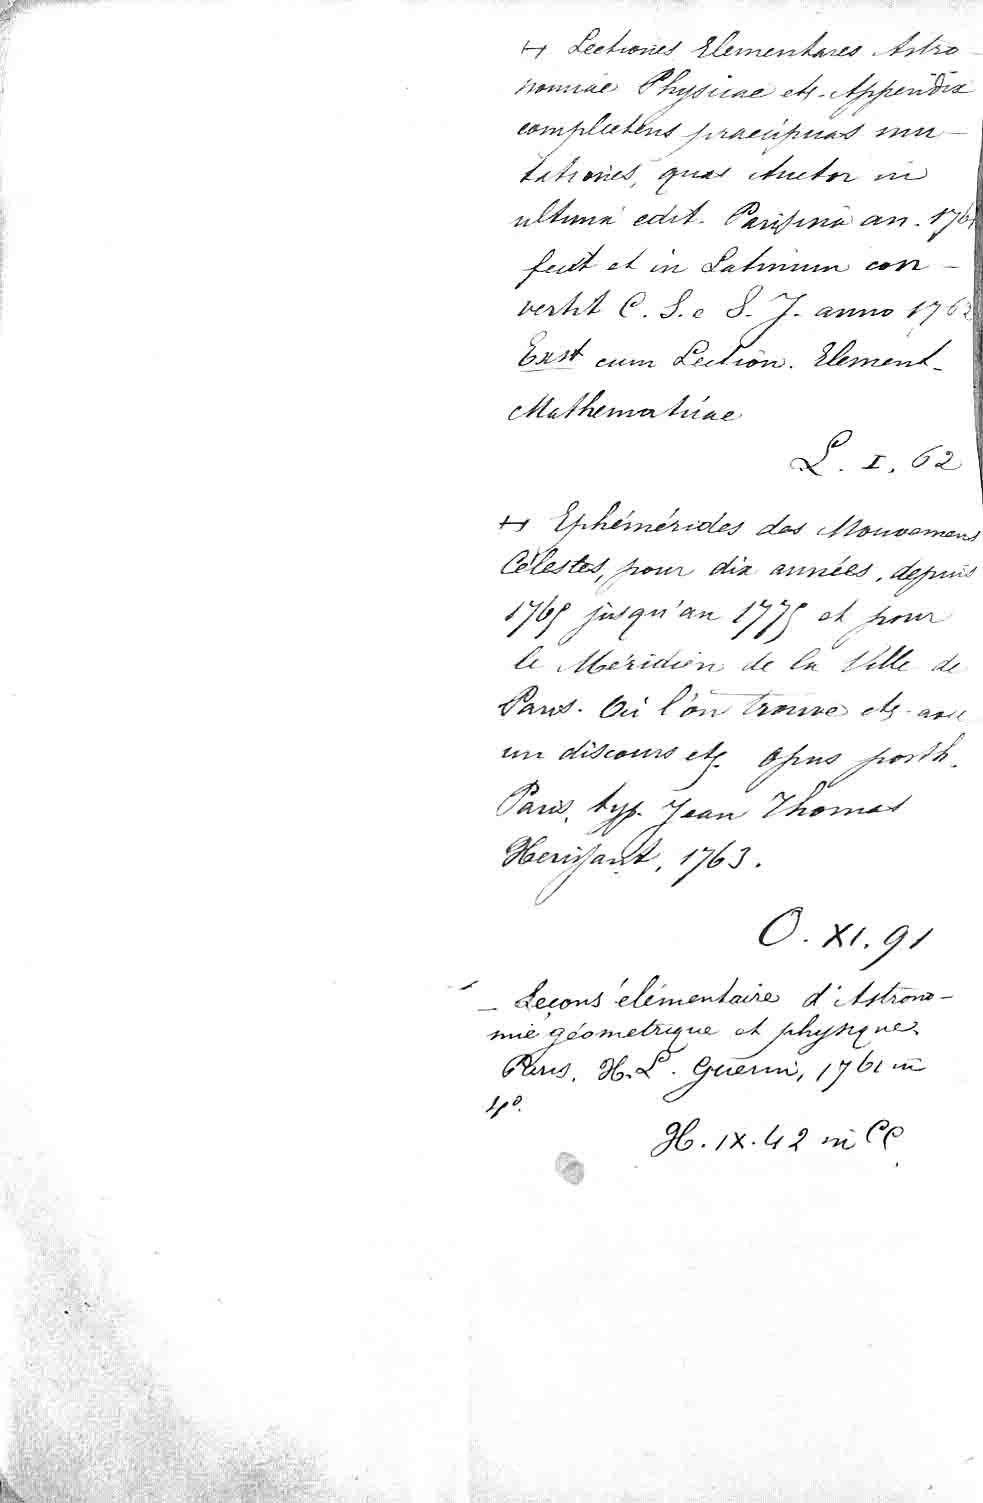 H Lectiones Elementares Astro-
nomiae Physicae etc. Appendix
complectens praecipuas mu-
tationes, quas Auctor in
ultima edit. Parisina an. 1761
fecit et in Latinum con-
vertit C. S. e S. J. anno 1762
Exst cum Lection. Element.
Mathematicae
L. I. 62
H Ephémérides des Mouvemens
Célestes, pour dix années, depuis
1765 jusqu'au 1775 et pour
le Méridien de la Ville de
Paris. Où l'on trouve etc. avec
un discours etc. Opus posth.
Paris, typ. Jean Thomas
Herissant, 1763.
O. XI. 91
- Leçons élémentaire d'Astrono-
mie géometrique et physique
Paris, H. L. Guerin, 1761 in
4º.
H. IX. 42 in CC